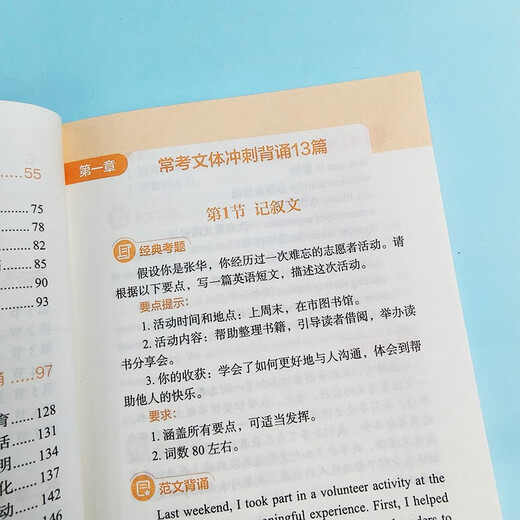 55
75
78
82
85
90
93
诵 97
育 128
活 131
明 134
化 137
动 142
146
第一章 常考文体冲刺背诵13篇
第1节 记叙文
经典考题
假设你是张华，你经历过一次难忘的志愿者活动。请
根据以下要点，写一篇英语短文，描述这次活动。
要点提示：
1. 活动时间和地点：上周末，在市图书馆。
2. 活动内容：帮助整理书籍，引导读者借阅，举办读
书分享会。
3. 你的收获：学会了如何更好地与人沟通，体会到帮
助他人的快乐。
要求：
1. 涵盖所有要点，可适当发挥。
2. 词数 80 左右。
范文背诵
Last weekend, I took part in a volunteer activity at the
meaningful experience. First, I helped